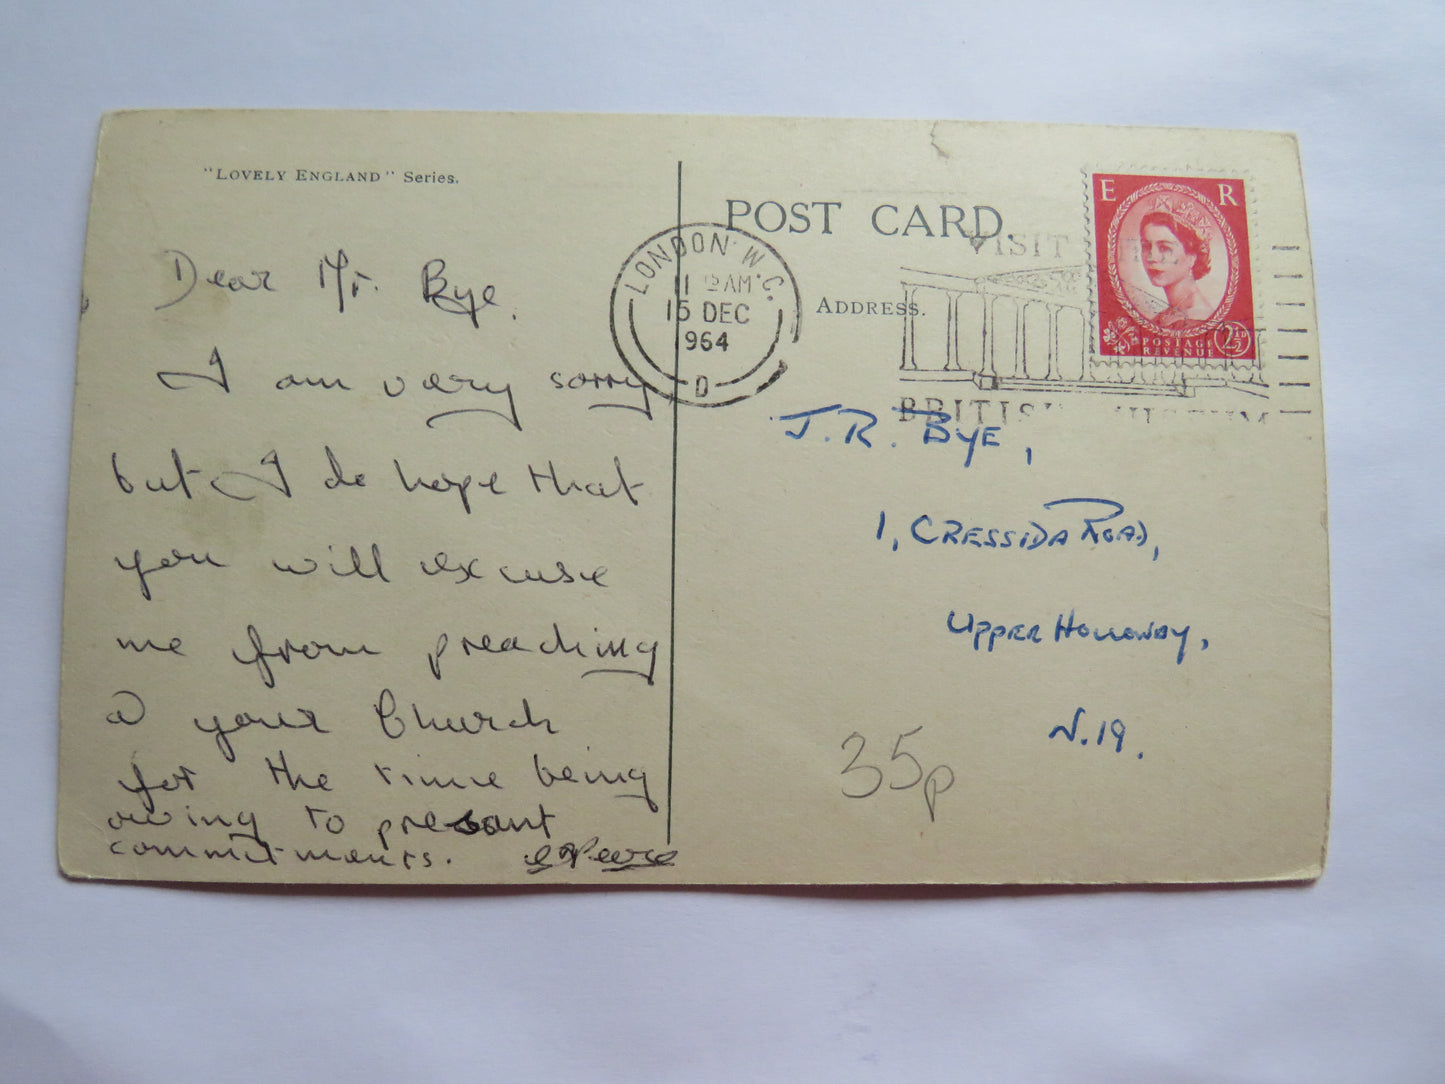 "LOVELY ENGLAND" Series.
Dear Mr. Bye.
I am very sorry
but I do hope that
you will excuse
me from preaching
@ your Church
for the time being
owing to present
commitments.
POST CARD.
ADDRESS.
LONDON W.C.
11 15 AM
15 DEC
1964
D
VISIT THE
BRITISH MUSEUM
E R
POSTAGE
REVENUE
2½D
J. R. BYE,
1, CRESSIDA ROAD,
UPPER HOLLOWAY,
N.19.
35p